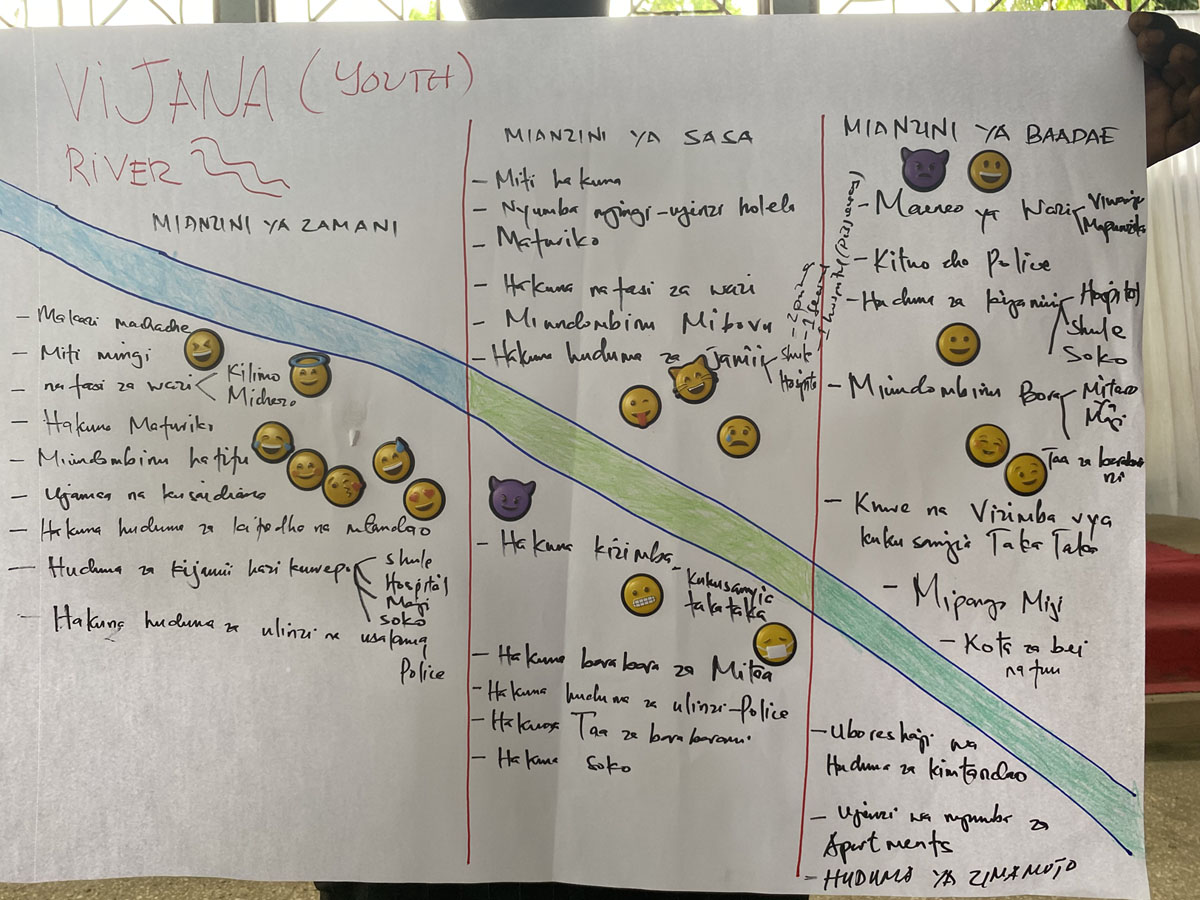 VIJANA (YOUTH)
RIVER
MIANZINI YA ZAMANI
- Makazi machache
- Miti mingi
- nafasi za wazi
Kilimo
Michezo
- Hakuna Mafuriko
- Miundombinu hafifu
- Ujamaa na kusaidiana
- Hakuna huduma za kipedha na mtandao
- Huduma za kijamii hazikuwepo
Shule
Hospital
Maji
Soko
- Hakuna huduma za ulinzi na usalama
Police
MIANZINI YA SASA
- Miti hakuna
- Nyumba nyingi - ujenzi holela
- Mafuriko
- Hakuna nafasi za wazi
- Miundombinu Mibovu
- Hakuna huduma za jamii
Shule
Hospital
- Hakuna kizimba
- Kukusanyia
taka taka
- Hakuna barabara za Mitaa
- Hakuna huduma za ulinzi - Police
- Hakuna Taa za barabarani
- Hakuna soko
MIANZINI YA BAADAE
- Maeneo ya Wazi
Viwanja
Mapumziko
- Kituo cha Police
- Huduma za kijamii
Hospital
Shule
Soko
- Miundombinu Bora
Mitaro
Maji
Taa za barabara
ni
- Kuwe na Vizimba vya
kukusanyia Taka Taka
- Mipango Miji
- Kota za bei
nafuu
- Uboreshaji wa
Huduma za kimtandao
- Ujenzi wa nyumba za
Apartments
- HUDUMA YA ZIMAMOTO